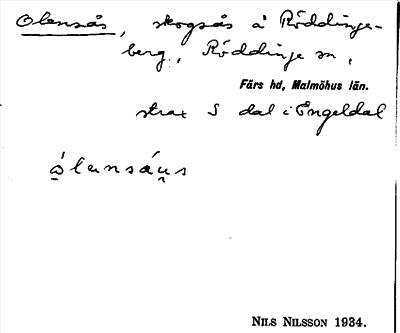 Olensås, skogsås å Röddinge-
berg, Röddinge sn,
Färs hd, Malmöhus län.
strax S dal i Engeldal
ó̱lensáu̯s
NILS NILSSON 1934.